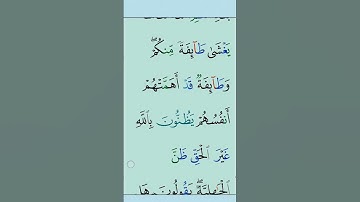 يَغْشَىٰ طَآئِفَةً مِّنكُمْ ۖ
وَطَآئِفَةٌ قَدْ أَهَمَّتْهُمْ
أَنفُسُهُمْ يَظُنُّونَ بِٱللَّهِ
غَيْرَ ٱلْحَقِّ ظَنَّ
ٱلْجَٰهِلِيَّةِ ۖ يَقُولُونَ هَل